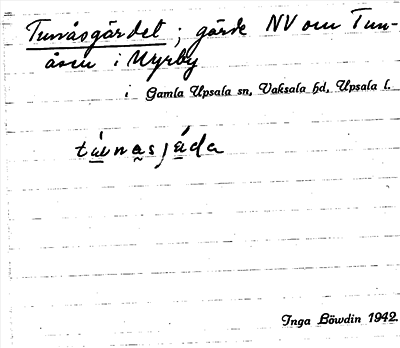 Tunåsgärdet; gärde NV om Tun-
åsen i Myrby
i Gamla Upsala sn, Vaksala hd, Upsala l.
Inga Löwdin 1942.